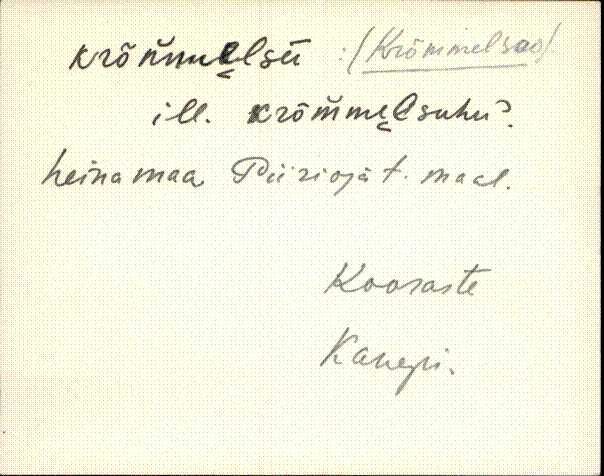 krõm̆me̮lsŭ : (Krõmmelsoo)
ill. krõm̆me̮lsuhu?
heinamaa Piirioja t. maal.
Kooraste
Kanepi.